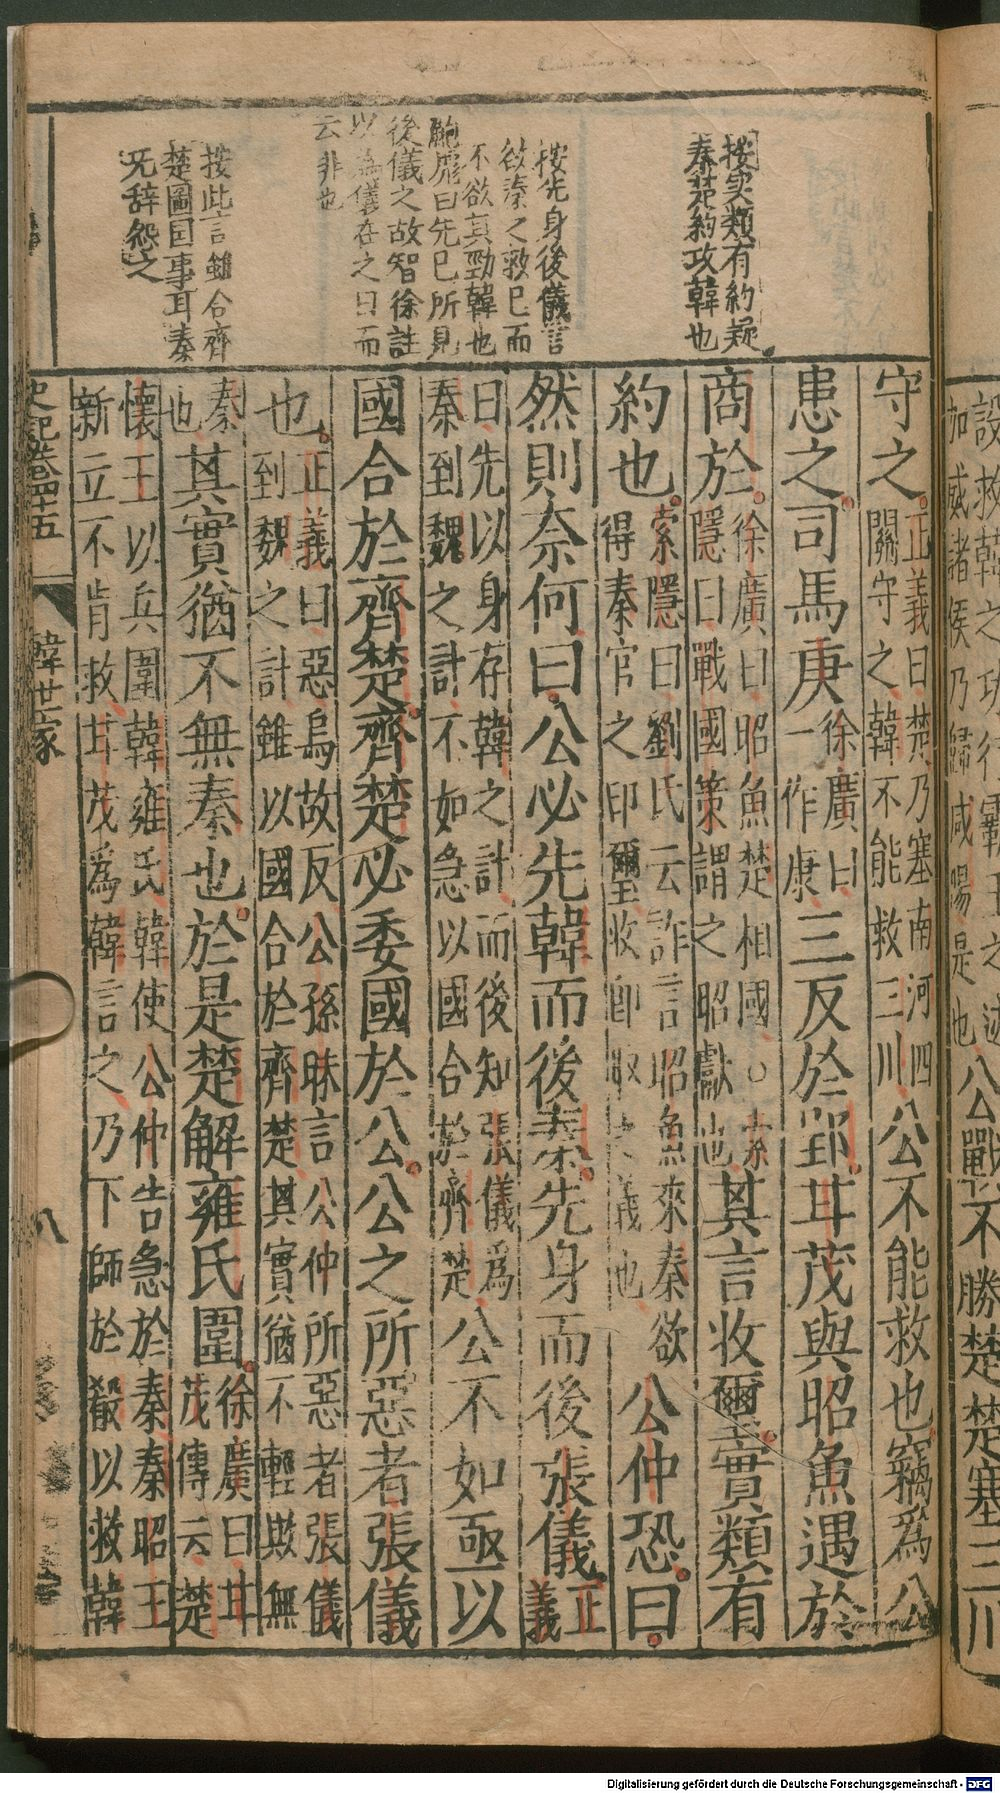 設救韓之功行霸王之迹
加威諸侯乃歸咸陽是也
公戰不勝楚楚塞三川
按実類有約疑
秦楚約攻韓也
按先身後儀言
欲秦之救已而
不欲真勁韓也
鮑彪曰先已所見
後儀之故智徐註
以為儀在之日而
云非也
按此言雖合齊
楚圖国事耳秦
无辞怨之
守之。正義曰楚乃塞南河四
關守之韓不能救三川
公不能救也竊爲公
患之。司馬庚
徐廣曰
一作康
三反於郢。甘茂與昭魚遇於
商於。徐廣曰昭魚楚相國○索
隱曰戰國策謂之昭獻也
其言收璽實類有
約也。索隱曰劉氏云詐言昭魚來秦欲
得秦官之印璽收即取之義也
公仲恐曰。
然則奈何曰。公必先韓而後秦。先身而後張儀。正
義
曰先以身存韓之計而後知張儀爲
秦到魏之計不如急以國合於齊楚
公不如亟以
國合於齊楚。齊楚必委國於公。公之所惡者張儀
也。正義曰惡烏故反公孫昧言公仲所惡者張儀
到魏之計雖以國合於齊楚其實猶不輕欺無
秦
也
其實猶不無秦也。於是楚解雍氏圍。徐廣曰甘
茂傳云楚
懷王以兵圍韓雍氏韓使公仲告急於秦秦昭王
新立不肯救甘茂爲韓言之乃下師於殽以救韓
史記卷四十五 韓世家 八
Digitalisierung gefördert durch die Deutsche Forschungsgemeinschaft - DFG